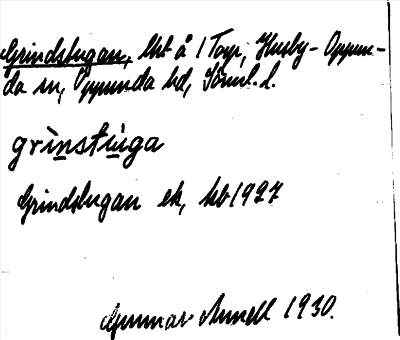 Grindstugan, lht å 1 Torp, Husby-Oppun-
da sn, Oppunda hd, Söml. l.
grìnstùga
Grindstugan ek, hb 1927
Gunnar Annell 1930.